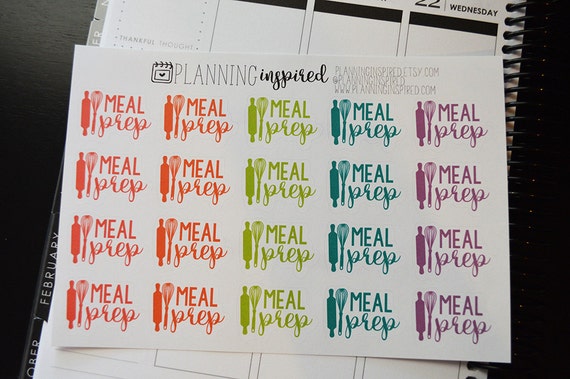 22 WEDNESDAY
THANKFUL THOUGHT
PLANNING inspired
PLANNINGINSPIRED.ETSY.COM
@PLANNINGINSPIRED
WWW.PLANNINGINSPIRED.COM
MEAL MEAL MEAL MEAL MEAL
prep prep prep prep prep
MEAL MEAL MEAL MEAL MEAL
prep prep prep prep prep
MEAL MEAL MEAL MEAL MEAL
prep prep prep prep prep
MEAL MEAL MEAL MEAL MEAL
prep prep prep prep prep
FEBRUARY